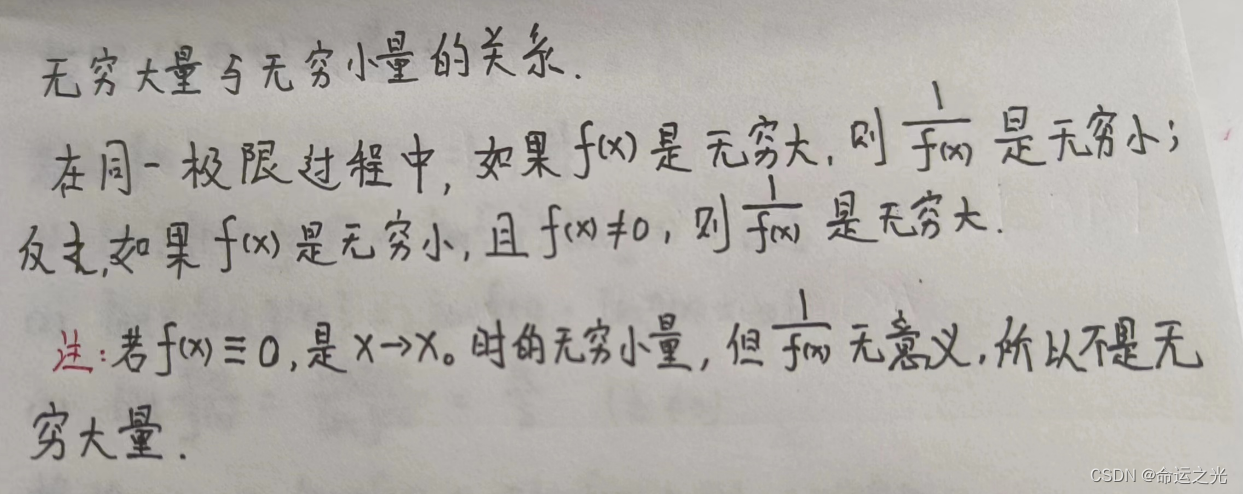 无穷大量与无穷小量的关系.
在同一极限过程中,如果f(x)是无穷大,则1/f(x)是无穷小;
反之,如果f(x)是无穷小,且f(x)≠0,则1/f(x)是无穷大.
注:若f(x)≡0,是x→x₀时的无穷小量,但1/f(x)无意义.所以不是无
穷大量.
CSDN @命运之光